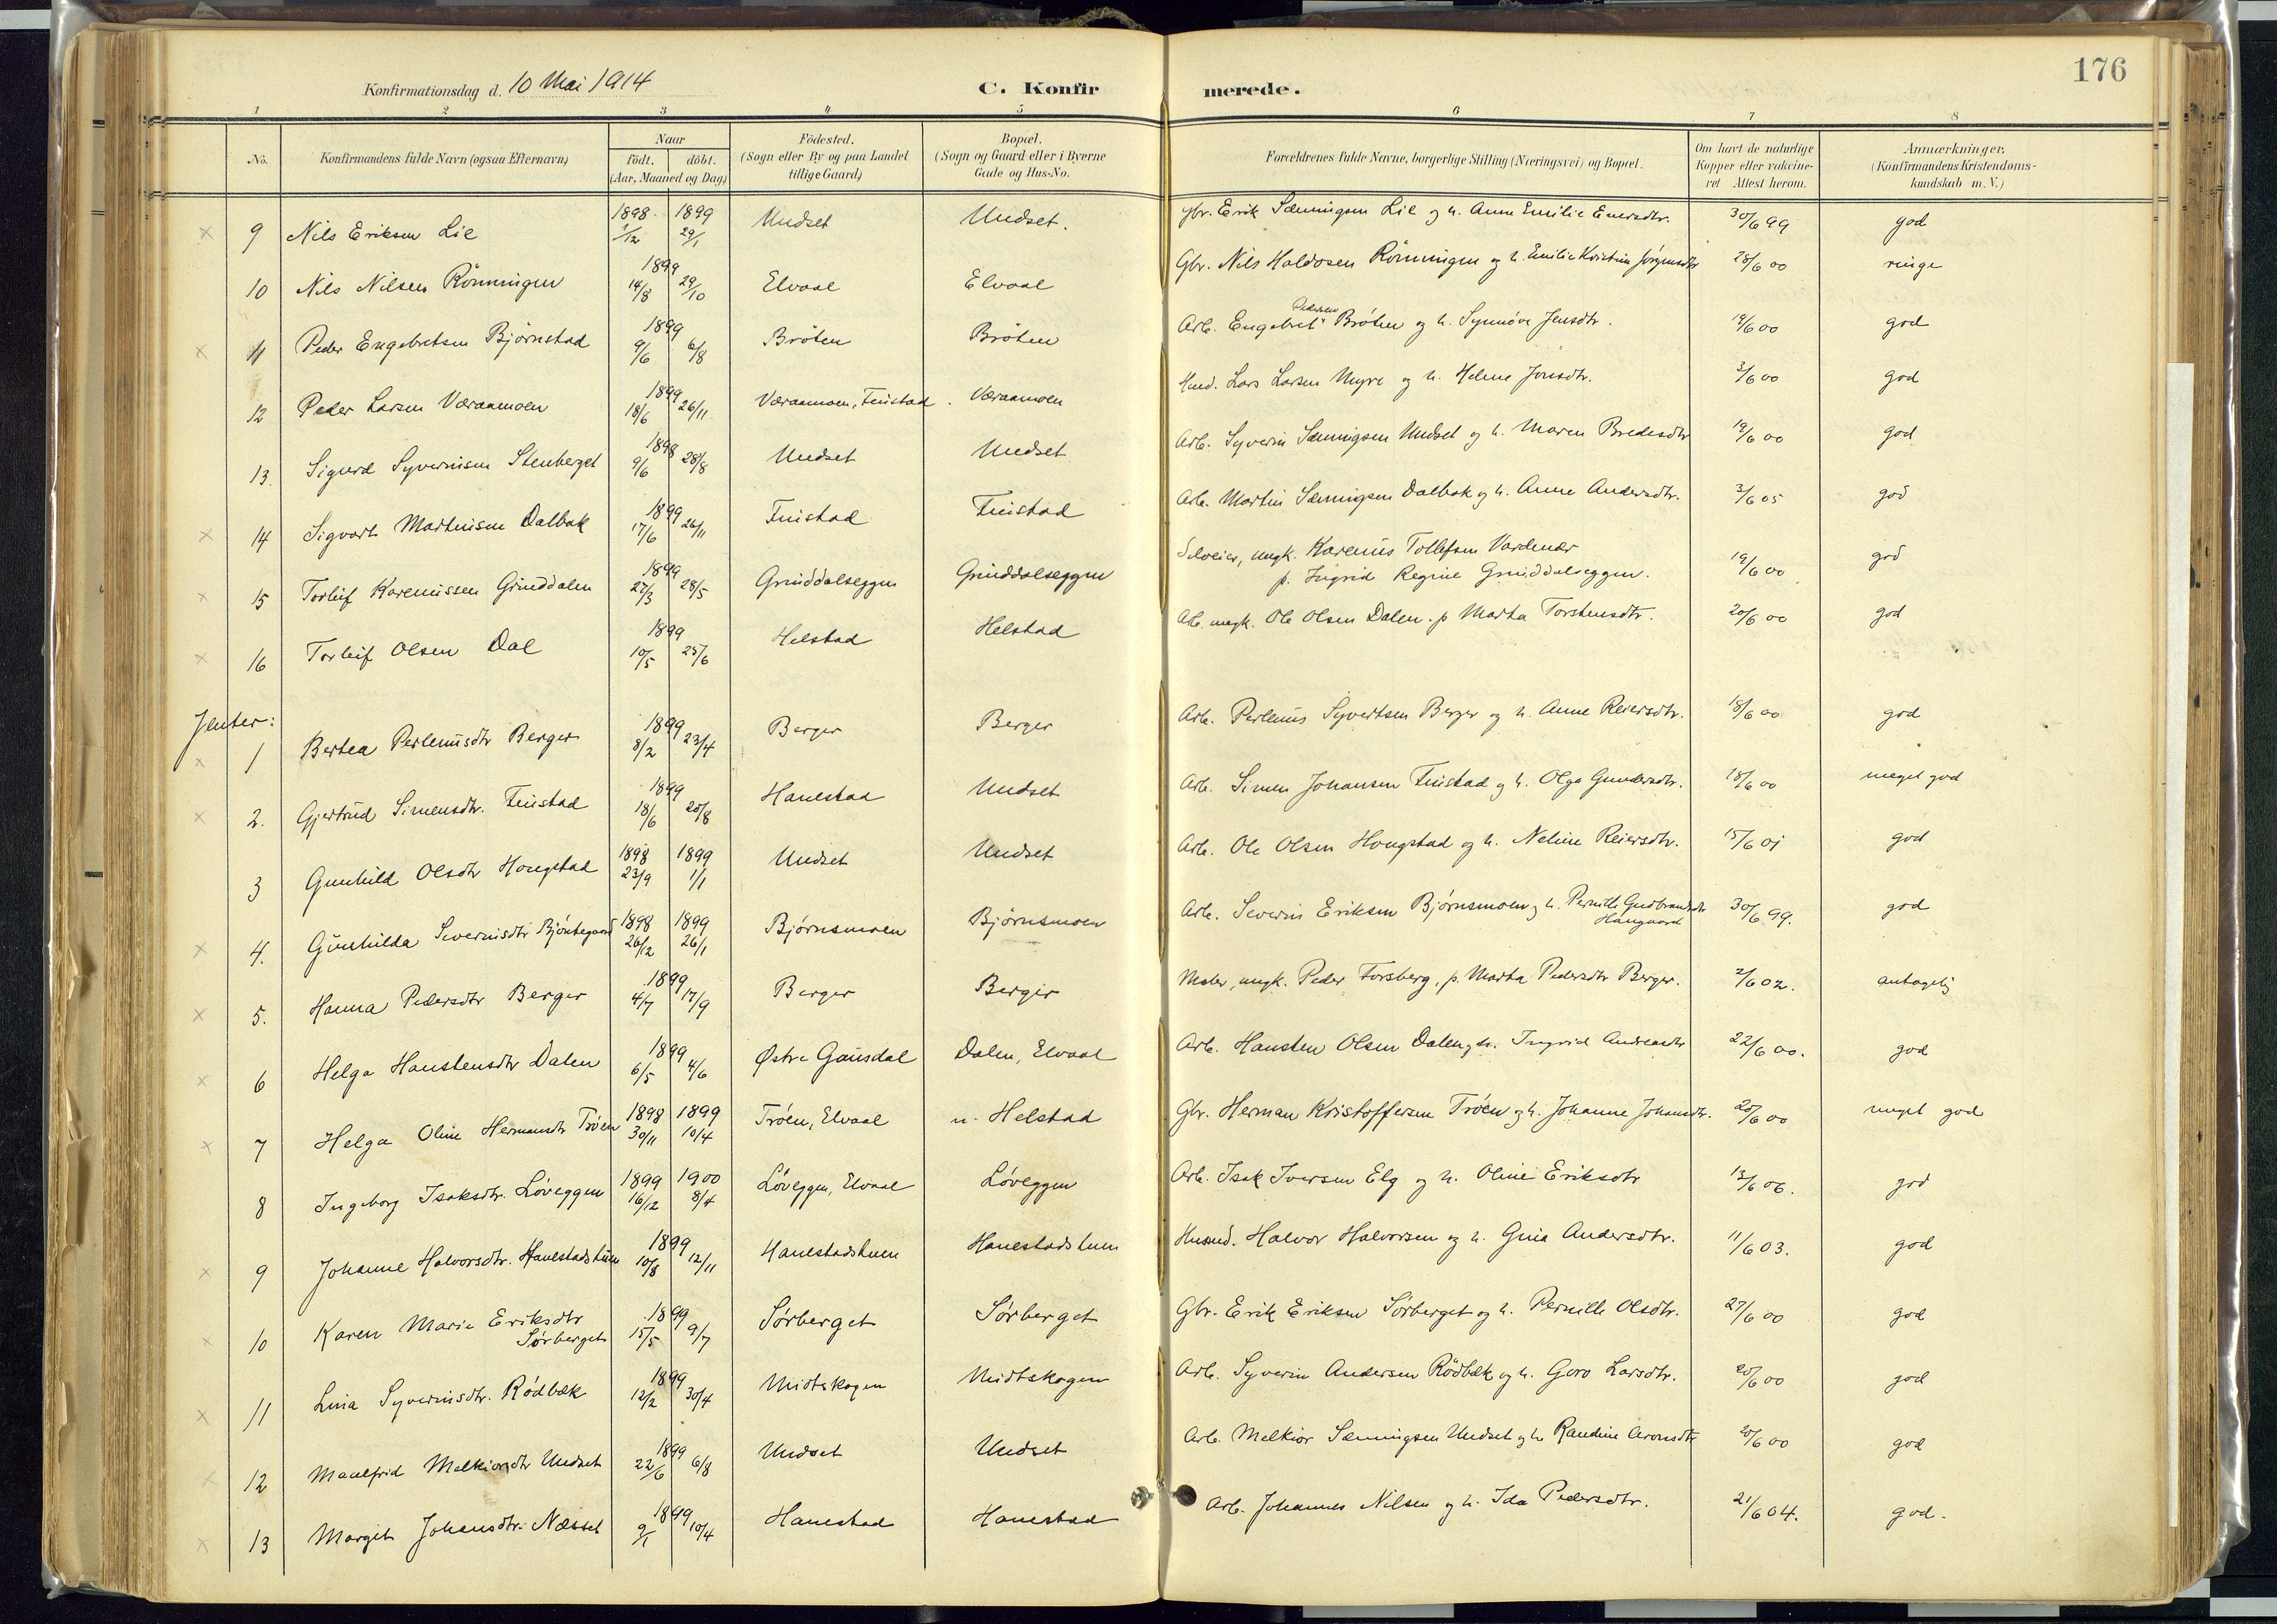 176
Konfirmationsdag d. 10 Mai 1914 C. Konfirmerede.
1 2 3 4 5 6 7 8
No. Konfirmandens fulde Navn (ogsaa Efternavn) Naar födt. döbt. (Aar, Maaned og Dag) Födested. (Sogn eller By og paa Landet tillige Gaard) Bopæl. (Sogn og Gaard eller i Byerne Gade og Hus-No. Forældrenes fulde Navne, borgerlige Stilling (Næringsvei) og Bopæl. Om havt de naturlige Kopper eller vaccineret Attest herom. Anmærkninger, (Konfirmandens Kristendomskundskab m. V.)
9 Nils Eriksen Lie 1898 1/12 1899 29/1 Undset Undset. Gbr. Erik Sænningsen Lie og h. Anne Emilie Enersdtr. 30/6 99 god
10 Nils Nilsen Rönningen 1899 14/8 29/10 Elvaal Elvaal Gbr. Nils Haldosen Rönningen og h. Emilie Kristine Jörgensdtr 28/6 00 ringe
11 Peder Engebretsen Björnstad 1899 9/6 6/8 Bröten Bröten Arb. Engebret Pedersen Bröten og h. Synnöve Jensdtr. 19/6 00 god
12 Peder Larsen Væraamoen 1899 18/6 26/11 Væraamoen, Finstad. Væraamoen Husd. Lars Larsen Myre og h. Helene Jonsdtr. 3/6 00 god
13. Sigurd Syverinsen Stenberget 1898 9/6 28/8 Undset Undset Arb. Syverin Sænningsen Undset og h. Maren Bredesdtr 19/6 00 god
14 Sigvart Martinsen Dalbak 1899 17/6 26/11 Finstad Finstad Arb. Martin Sænningsen Dalbak og h. Anne Andersdtr. 3/6 05 god
15 Torleif Kareniussen Grinddalen 1899 27/3 28/5 Grinddalseggen Grinddalseggen Selveier, ungk. Karenus Tollefsen Vardenær
p. Ingrid Regine Grinddalseggen. 19/6 00 god
16 Torleif Olsen Dal 1899 10/5 25/6 Helstad Helstad Arb. ungk. Ole Olsen Dalen. p Marta Torstensdtr. 20/6 00 god
Jenter:
1 Bertea Perleniusdtr Berger 1899 8/2 23/4 Berger Berger Arb. Perlenus Syvertsen Berger og h. Anne Reiersdtr. 18/6 00 god
2. Gjertrud Simensdtr. Finstad 1899 18/6 20/8 Hanestad Undset Arb. Simen Johansen Finstad og h. Olga Gundersdtr. 18/6 00 meget god
3 Gunhild Olsdtr Hougstad 1898 23/9 1899 1/1 Undset Undset Arb. Ole Olsen Hougstad og h. Neline Reiersdtr. 15/6 01 god
4. Gunhilda Severinsdtr 1898 26/12 1899 26/1 Björnsmoen Björnsmoen Arb. Severin Eriksen Björnsmoen og h. Pernille Gudbrandsdtr
Haugaard 30/6 99. god
5. Hanna Pedersdtr Berger 1899 4/7 17/9 Berger Berger Maler, ungk. Peder Forsberg, p. Marta Pedersdtr Berger. 2/6 02. antagelig
6 Helga Hanstensdtr Dalen 1899 6/5 4/6 Østre Gausdal Dalen, Elvaal Arb. Hansten Olsen Dalen, h. Ingrid Andreasdtr 22/6 00. god
7 Helga Oline Hermansdtr Tröen 1898 30/11 1899 10/4 Tröen, Elvaal n. Helstad Gbr. Herman Kristoffersen Tröen og h. Johanne Johansdtr. 20/6 00 meget god
8 Ingeborg Isaksdtr. Löveggen 1899 16/12 1900 8/4 Löveggen, Elvaal Löveggen Arb. Isak Iversen Elg og h. Oline Eriksdtr 13/6 06. god
9 Johanne Halvorsdtr. Hanestadstuen 1899 10/8 12/11 Hanestadstuen Hanestadstuen Husmd. Halvor Halvorsen og h. Gina Andersdtr. 11/6 03. god
10 Karen Marie Eriksdtr
Sörberget 1899 15/5 9/7 Sörberget Sörberget Gbr. Erik Eriksen Sörberget og h. Pernille Olsdtr. 27/6 00 god
11 Lina Syverinsdtr. Rödbæk 1899 12/2 30/4 Midtskogen Midtskogen Arb. Syverin Andersen Rödbæk og h. Goro Larsdtr. 20/6 00 god
12 Maalfrid Melkiorsdtr Undset 1899 22/6 6/8 Undset Undset Arb. Melkior Sænningsen Undset og h. Randine Aronsdtr 20/6 00 god
13 Margit Johansdtr. Næsset 1899 9/1 10/4 Hanestad Hanestad Arb. Johannes Nilsen og h. Ida Pedersdtr. 21/6 04. god.